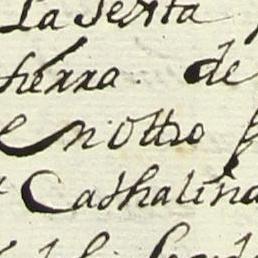 La sexta
tierra de
en otro
Cathalina